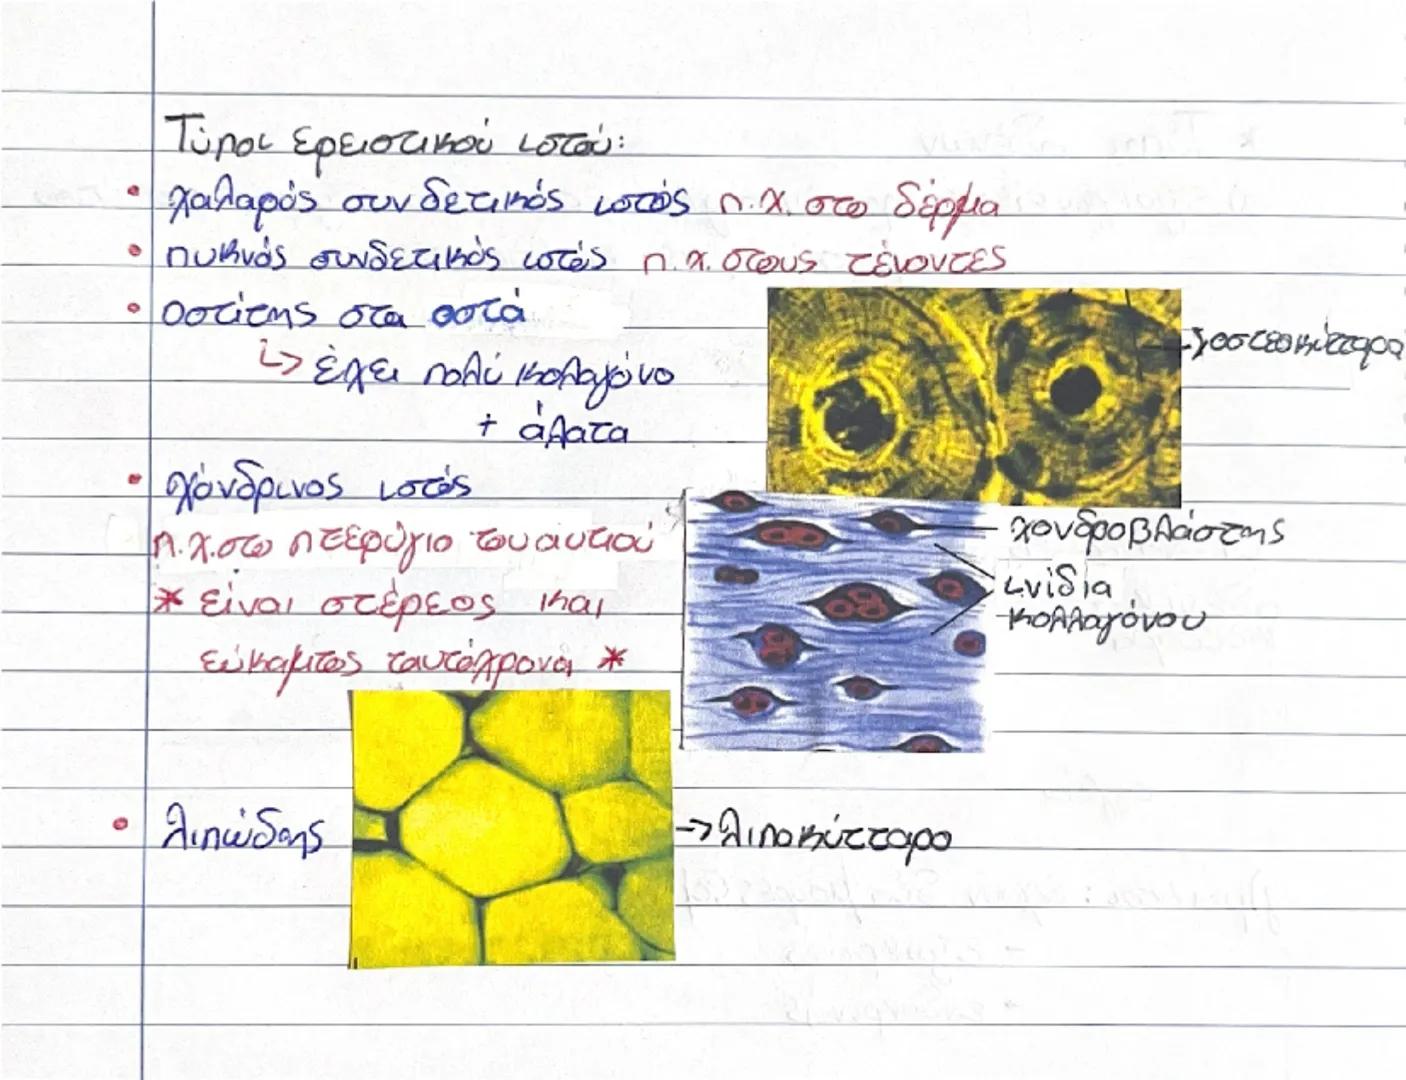 Τύποι ερειστικού ιστού:
• χαλαρός συνδετικός ιστός π.χ. στο δέρμα
• πυκνός συνδετικός ιστός π.χ. στους τένοντες
• οστίτης στα οστά
↳ έχει πολύ κολαγόνο
+ άλατα
→ οστεοκύτταρα
• χόνδρινος ιστός
π.χ. στο πτερύγιο του αυτιού
* είναι στέρεος και
εύκαμπτος ταυτόχρονα *
χονδροβλάστης
ινίδια
κολλαγόνου
• λιπώδης
→ λιποκύτταρο